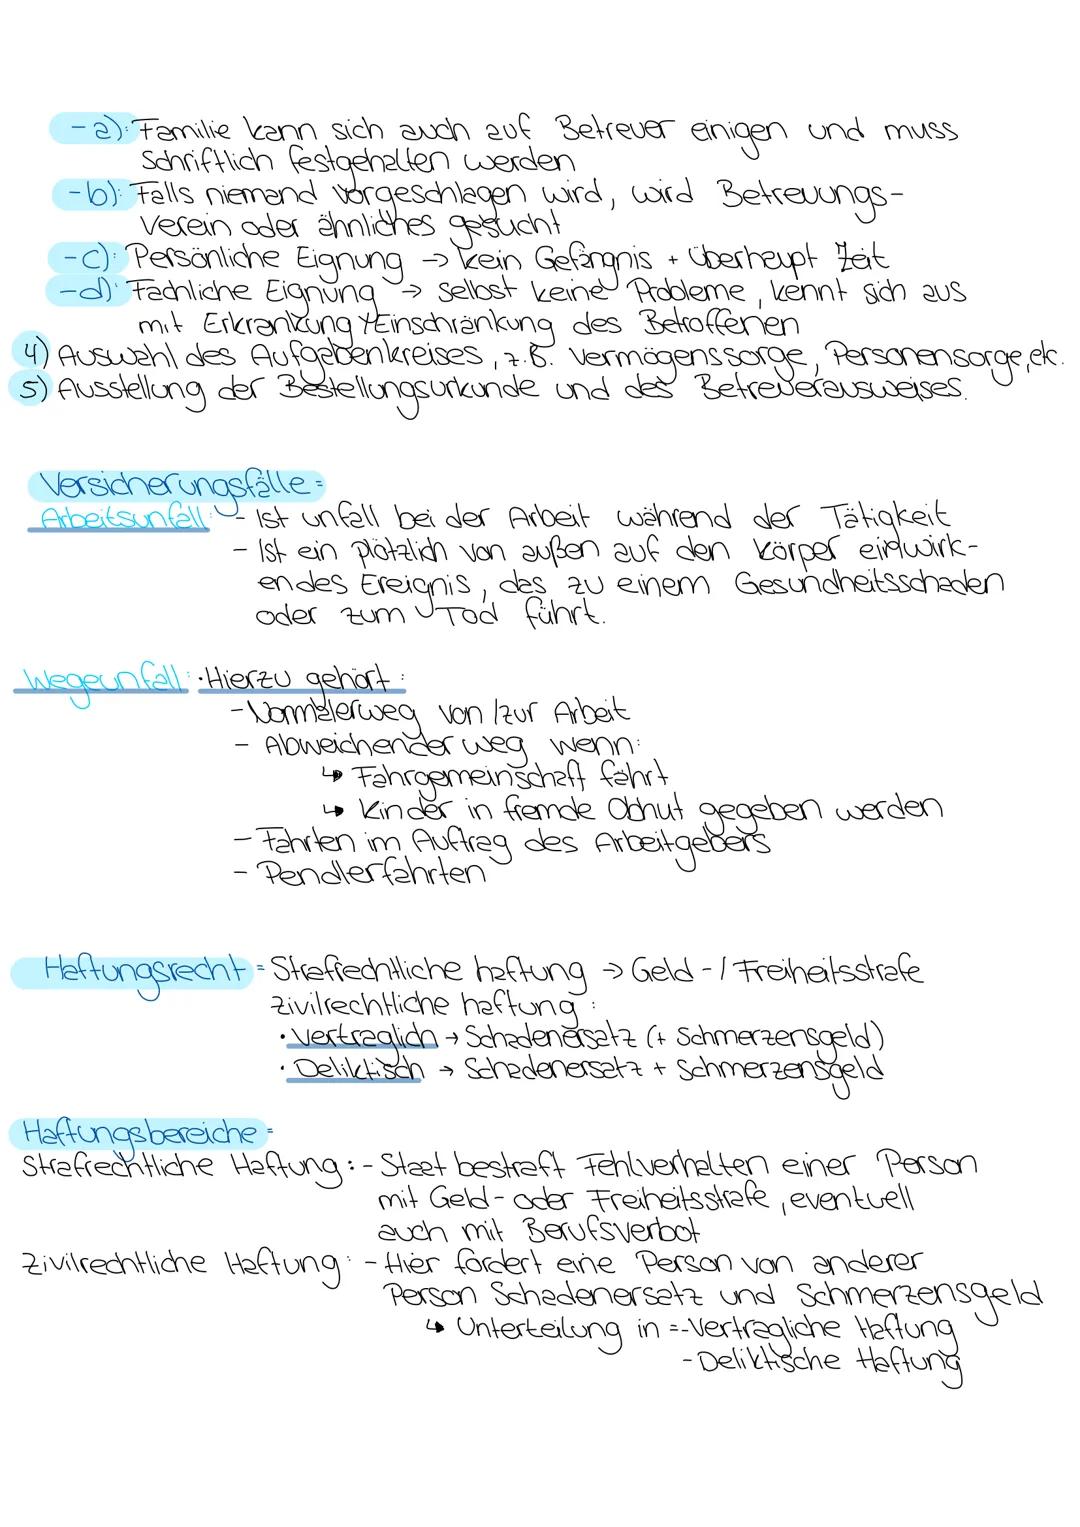 -a): Familie kann sich auch auf Betreuer einigen und muss
schriftlich festgehalten werden
-b): Falls niemand vorgeschlagen wird, wird Betreuungs-
verein oder ähnliches gesucht
-c): Persönliche Eignung → kein Gefängnis + überhaupt Zeit
-d): Fachliche Eignung → selbst keine Probleme, kennt sich aus
mit Erkrankung / Einschränkung des Betroffenen
4) Auswahl des Aufgabenkreises, z.B. Vermögenssorge, Personensorge, etc.
5) Ausstellung der Bestellungsurkunde und des Betreuerausweises.
Versicherungsfälle =
Arbeitsunfall: - Ist unfall bei der Arbeit während der Tätigkeit
- Ist ein plötzlich von außen auf den Körper einwirk-
endes Ereignis, das zu einem Gesundheitsschaden
oder zum Tod führt.
Wegeunfall: · Hierzu gehört:
- Normalerweg von/zur Arbeit
- Abweichender weg wenn:
↳ Fahrgemeinschaft fährt
↳ Kinder in fremde Obhut gegeben werden
- Fahrten im Auftrag des Arbeitgebers
- Pendlerfahrten
Haftungsrecht = Strafrechtliche haftung → Geld-/Freiheitsstrafe
zivilrechtliche haftung:
· Vertraglich → Schadenersatz (+ Schmerzensgeld)
· Deliktisch → Schadenersatz + Schmerzensgeld
Haftungsbereiche =
Strafrechtliche Haftung: - Staat bestraft Fehlverhalten einer Person
mit Geld- oder Freiheitsstrafe, eventuell
auch mit Berufsverbot
Zivilrechtliche Haftung: - Hier fordert eine Person von anderer
Person Schadenersatz und Schmerzensgeld
↳ Unterteilung in =-Vertragliche Haftung
- Deliktische Haftung